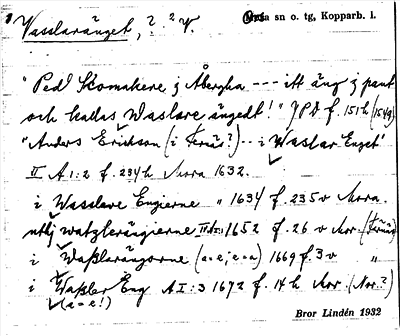 Vasslaränget, ? ? V. Mora sn o. tg, Kopparb. l.
"Ped Skomakere j Åbergha --- itt äng j pant
och kallas Waslare ängedt!" JPD f. 151 h (1549)
"Anders Erikson (i Kråk?) -- i Waslar Enget"
II A 1:2 f. 234 h Mora 1632.
i Wasslare Engierne " 1634 f. 235 v Mora.
uthj watzlerängierne 1652 f. 26 v Mor.
i Waßlerängorne (a=e; e=a) 1669 f. 3 v "
i Waßler Eng A I:3 1672 f. 14 h Mor. (Nor.?)
(a=e!)
Bror Lindén 1932